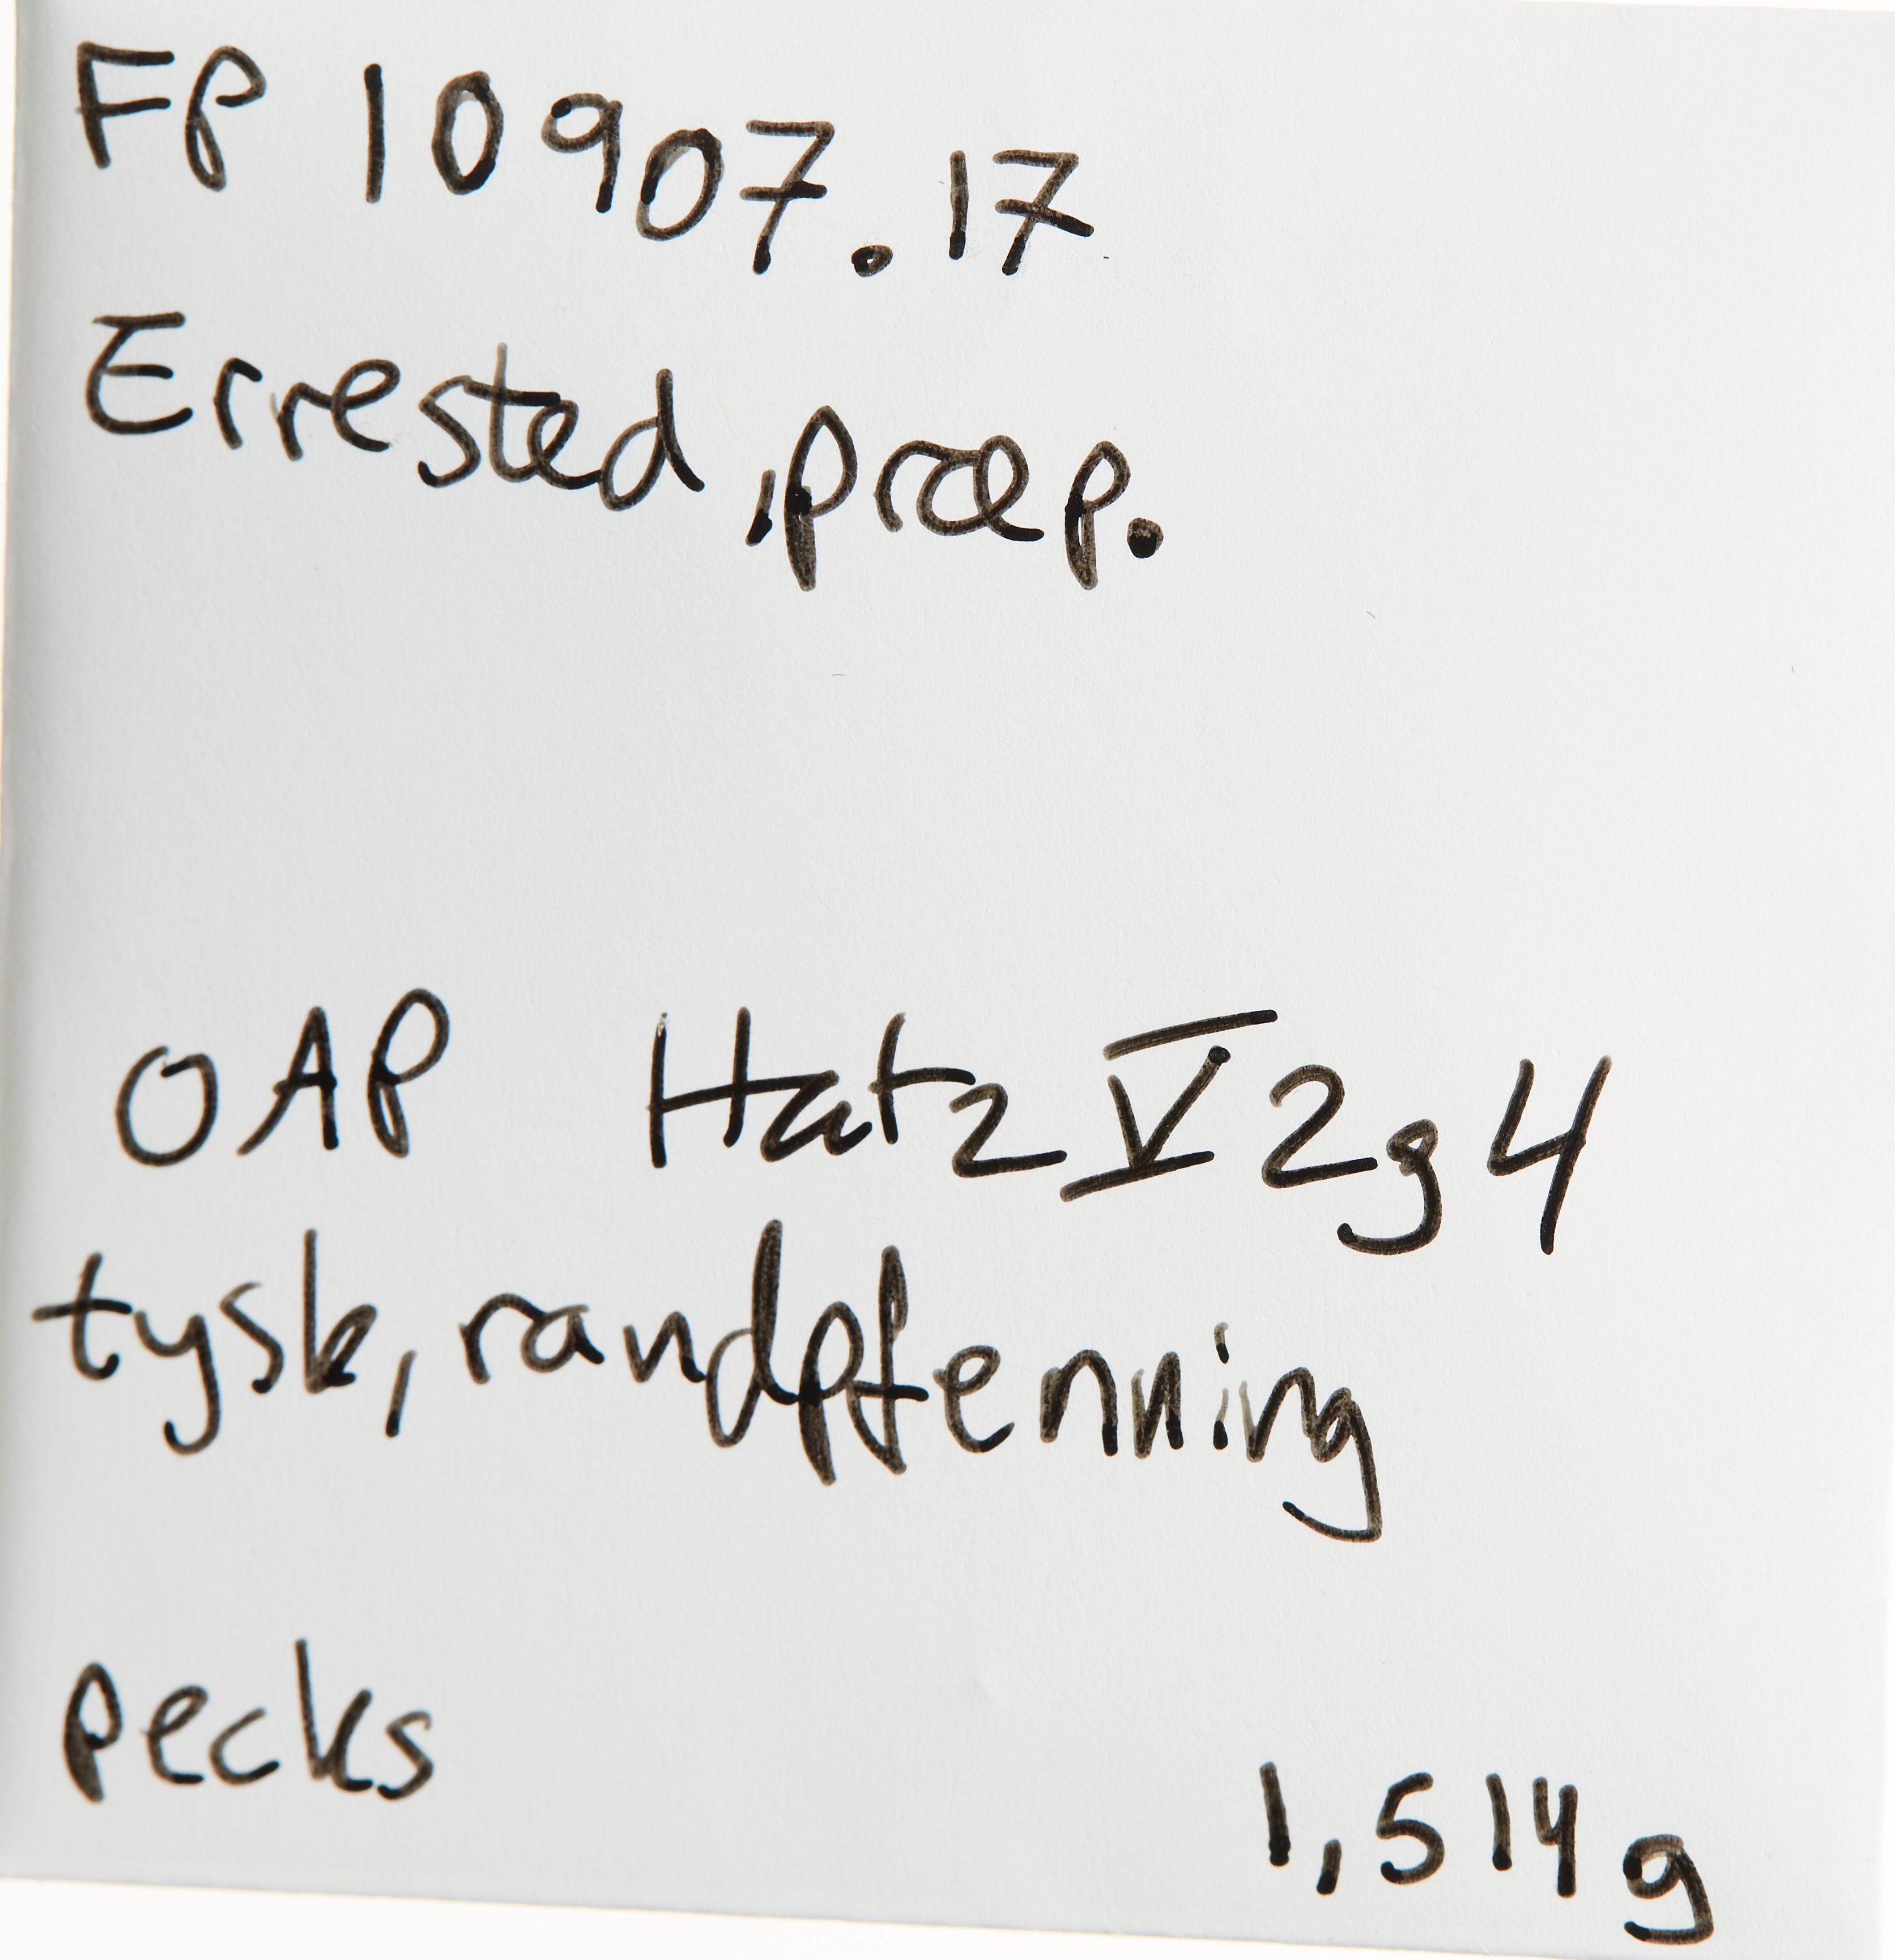 FP 10907.17
Errested, præp.
OAP Hatz V 2g4
tysk, randpfenning
pecks
1,514 g